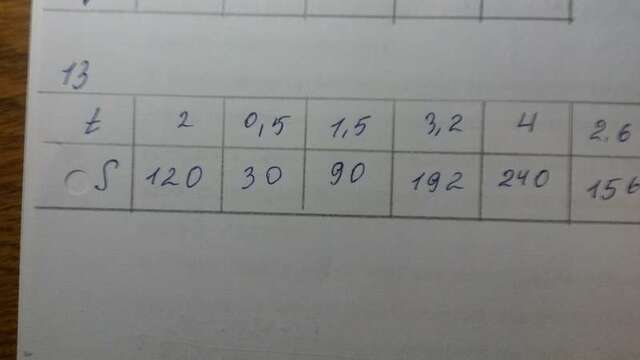 13
t 2 0,5 1,5 3,2 4 2.6
S 120 30 90 192 240 156